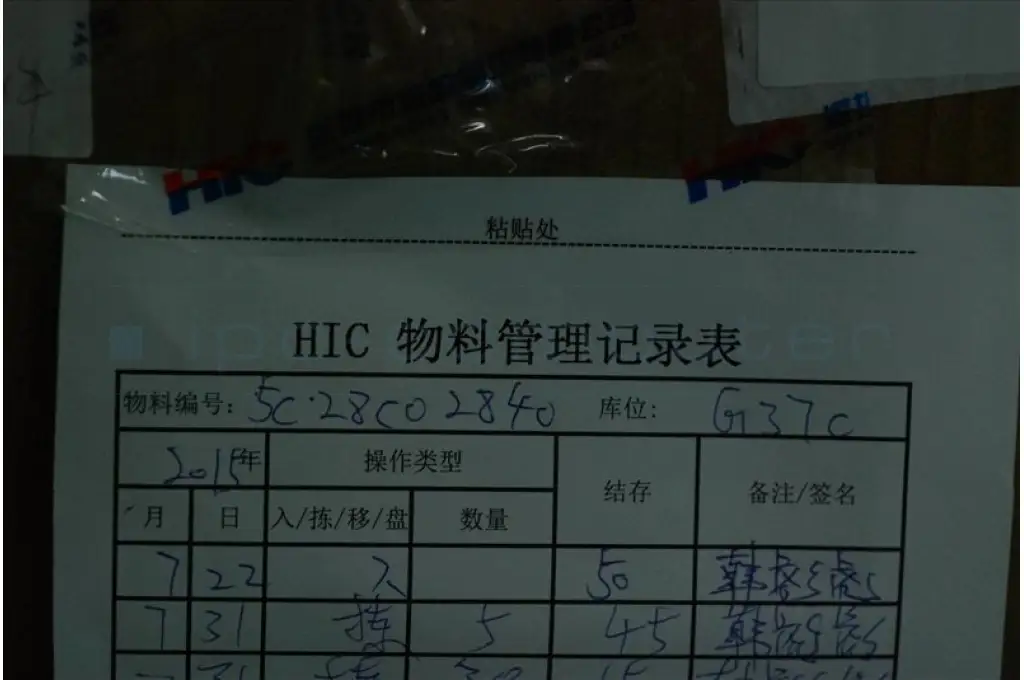 HIC
HIC
粘贴处
HIC 物料管理记录表
物料编号: 5C·28C0 2840 库位: G37C
2015年 操作类型 结存 备注/签名
月 日 入/拣/移/盘 数量
7 22 入 50 韩
7 31 拣 5 45 韩
31